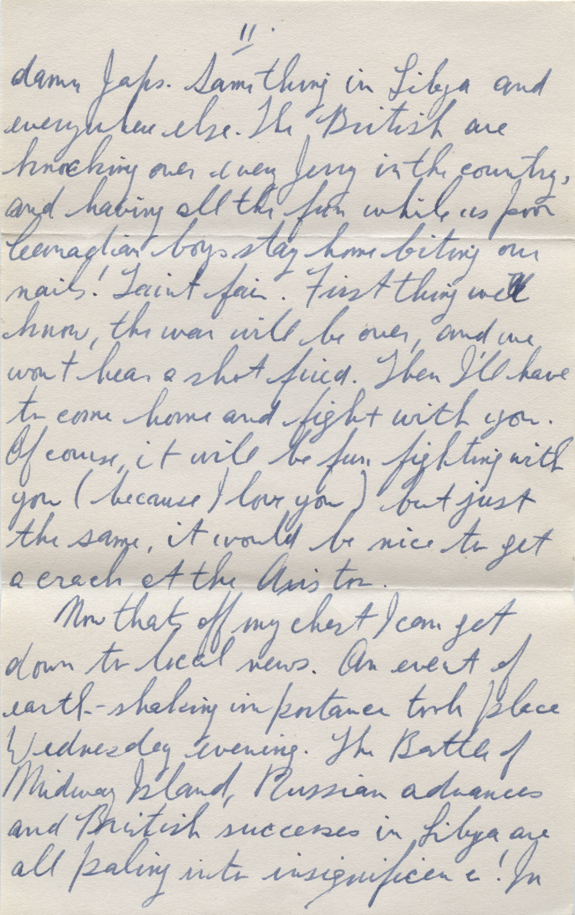 11.
damn Japs. Same thing in Libya and
everywhere else. The British are
knocking over every Jerry in the country,
and having all the fun while us poor
Canadian boys stay home biting our
nails! Taint fair. First thing we'll
know, the war will be over, and we
won't hear a shot fired. Then I'll have
to come home and fight with you.
Of course, it will be fun fighting with
you (because I love you) but just
the same, it would be nice to get
a crack at the
Now that's off my chest I can get
down to local news. An event of
earth-shaking importance took place
Wednesday evening. The Battle of
Midway Island, Russian advances
and British successes in Libya are
all paling into insignificance! In